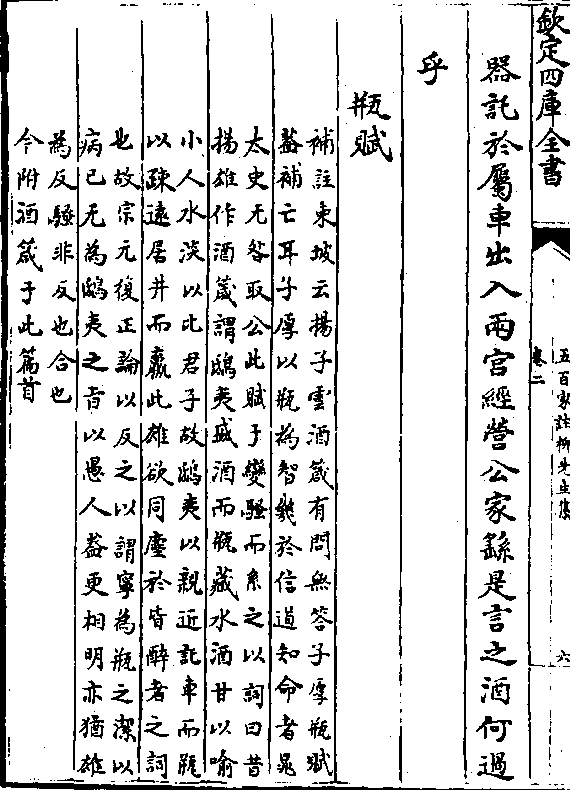 欽定四庫全書
五百家註栁先生集
卷二
六
器託於屬車出入兩宫經營公家繇是言之酒何過
乎
瓶賦
補註東坡云揚子雲酒箴有問無答子厚瓶賦
葢補亡耳子厚以瓶為智㡬於信道知命者晁
太史无咎取公此賦于變騷而系之以詞曰昔
揚雄作酒箴謂鴟夷盛酒而瓶藏水酒甘以喻
小人水淡以比君子故鴟夷以親近託車而瓶
以疎逺居井而羸此雄欲同塵於皆醉者之詞
也故宗元復正論以反之以謂寧為瓶之潔以
病已无為鴟夷之旨以愚人葢更相明亦猶雄
為反騷非反也合也
今附酒箴于此篇首